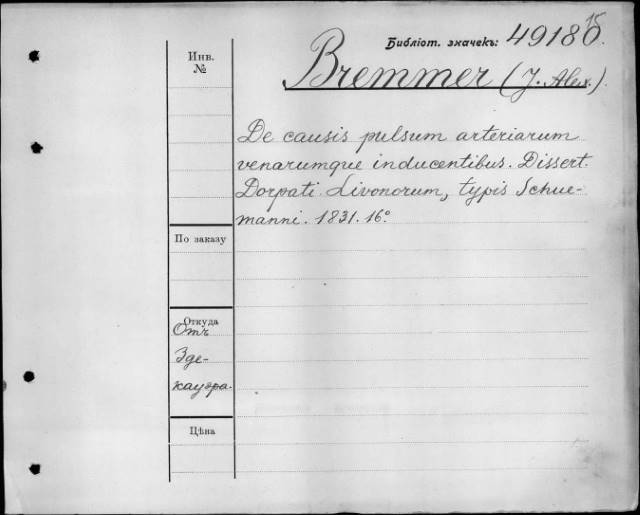 Библіот. значекъ: 49180 15
Bremmer (J. Alex.)
Инв.
№
De causis pulsum arteriarum
venarumque inducentibus. Dissert.
Dorpati Livonorum, typis Schue-
manni. 1831. 16º
По заказу
Откуда
Отъ
Зде-
кауэра.
Цѣна